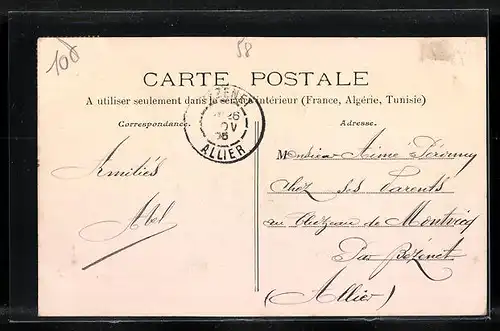 100
58
CARTE POSTALE
A utiliser seulement dans le service intérieur (France, Algérie, Tunisie)
Correspondance.
Adresse.
26
ALLIER
Amitiés
Abel
Monsieur Aimé
Chez ses Parents
au de
Par Bézenet
(Allier)